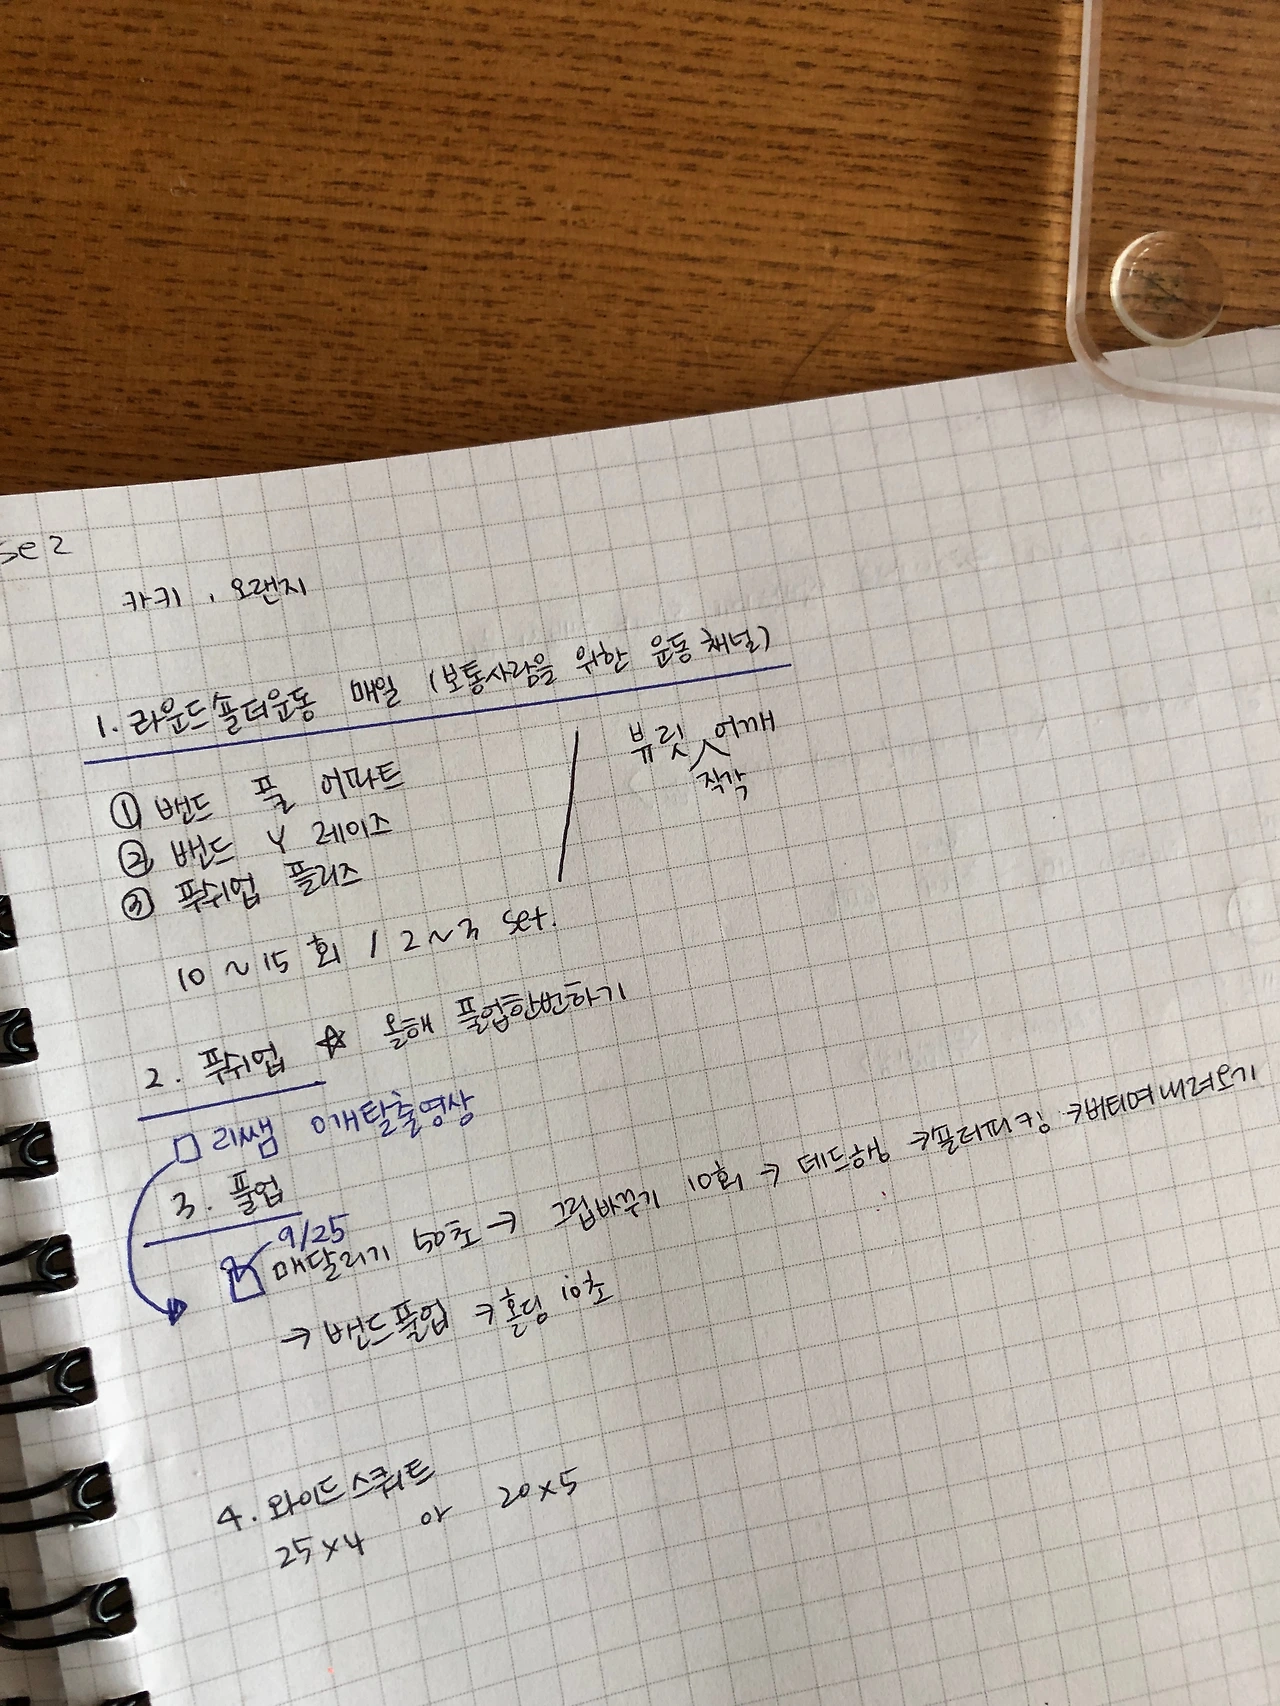 se 2
카키, 오랜지
1. 라운드숄더운동 매일 (보통사람을 위한 운동채널)
① 밴드 풀 어파트
② 밴드 Y 레이즈
③ 푸쉬업 플러스
10~15회 / 2~3 set.
뷰릿 어깨
직각
2. 푸쉬업 ☆ 올해 풀업한번하기
□ 리쌤 0개탈출영상
3. 풀업
9/25
매달리기 50초 → 그립바꾸기 10회 → 데드행 → 버티며내려오기
→ 밴드풀업 → 홀딩 10초
4. 와이드스쿼트
25×4 or 20×5